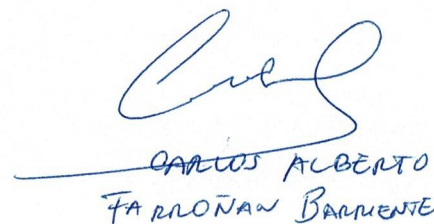 CARLOS ALBERTO
FARROÑAN BARRIENTE